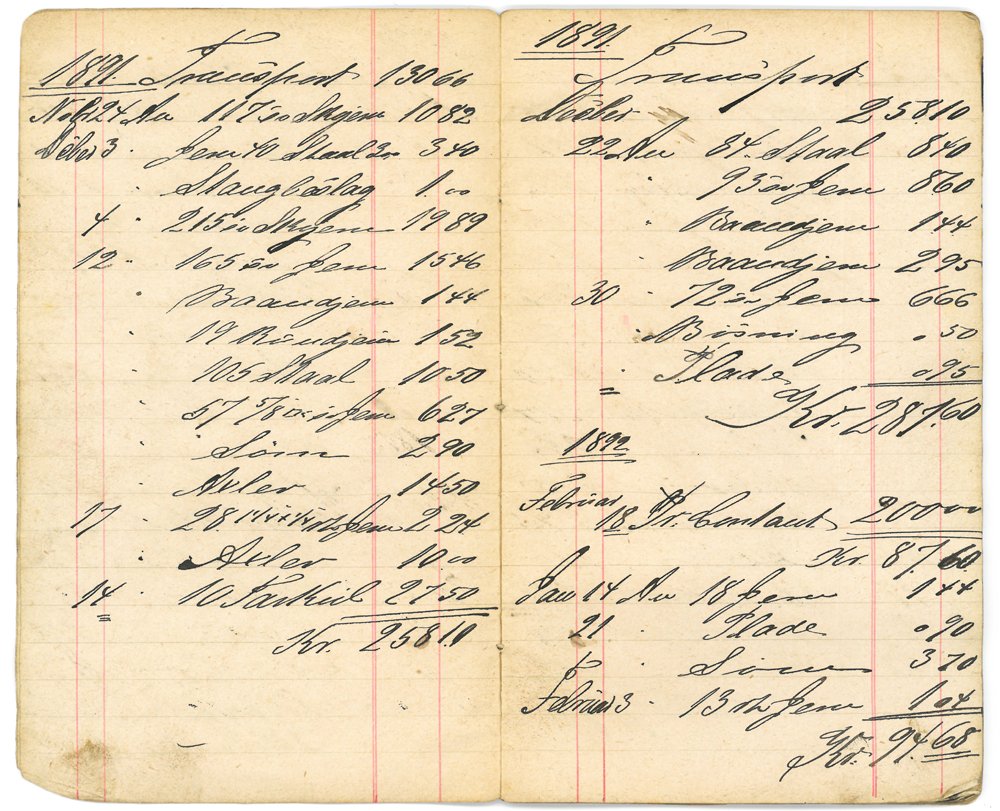 1891. Transport 130 66
Nobr 24 An 117 sv Skjenn 10 82
Deber 3 · Jern 40 Staal 3 40
· Stangbeslag 1.00
4 · 215 sv Skjenn 19 89
12 · 165 sv Jern 15 46
· Baandjern 1 44
· 19 Rundjern 1 52
· 105 Staal 10 50
· 57 5/8 Jern 6 27
· Söm 2 90
· Axler 14 50
17 · 28 Jern 2 24
· Axler 10.00
14 · 10 27 50
Kr. 258 10
1891.
Transport
Deober 258.10
22 An 84 Staal 8 40
· 95 sv Jern 8.60
· Baandjern 1 44
· Baandjern 2 95
30 · 72 sv Jern 6 66
· Bösning 0 50
· Plade 0 95
Kr. 287.60
1892
Februar
18 Pr. Contant 200 00
Kr. 87.60
Jan 14 An 18 Jern 1 44
21 · Plade 0 90
· Söm 3 70
Februar 3 · 13 Jern 1 04
Kr. 94.68